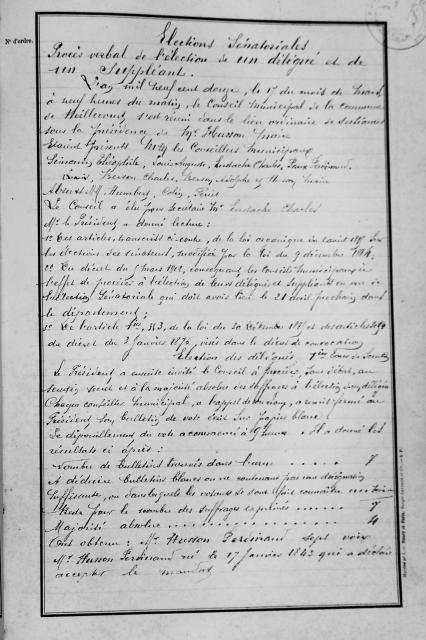 N° d'ordre.
Elections Sénatoriales
Procès verbal de l'élection de un délégué et de
un Suppléant.
L'an mil neuf cent douze, le 17 du mois de mars,
à neuf heures du matin, le Conseil Municipal de la commune
de s'est réuni dans le lieu ordinaire de ses séances
sous la présidence de Mr Husson maire
Etaient présents MM les Conseillers Municipaux
Théophile, Louis Auguste, Eustache Charles, Ferdinand,
Charles, Adolphe et Husson, maire
Absents MM. Humbert, Colin,
Le Conseil a élu pour Secrétaire Mr Eustache Charles
Mr le Président a donné lecture :
1° Des articles, transcrits ci-contre, de la loi organique du 2 août 1875 sur
les élections des sénateurs, modifiée par la loi du 9 décembre
2° Du décret du mars 1912, convoquant les Conseils municipaux à
l'effet de procéder à l'élection de leurs délégués et suppléants en vue de
l'élection Sénatoriale qui doit avoir lieu le 21 avril prochain dans
le département ;
3° De l'article 1er, § 3, de la loi du 30 Décembre 1875 et des articles
du décret du 3 Janvier 1876, visés dans le décret de convocation
Election des délégués, 1er tour de Scrutin
Le Président a ensuite invité le Conseil à procéder, sans débat, au
scrutin secret et à la majorité absolue des suffrages à l'élection du délégué
Chaque conseiller municipal, à l'appel de son nom, a remis fermé au
Président son bulletin de vote écrit sur papier blanc.
Le dépouillement du vote a commencé à 9 heures. Il a donné les
résultats ci après :
Nombre de bulletins trouvés dans l'urne . . . . . 7
A déduire bulletins blancs ou ne contenant pas une désignation
suffisante, ou dans lesquels les votants se sont fait connaître
Reste pour le nombre des suffrages exprimés . . . . . 7
Majorité absolue . . . . . . . . . . . . . . . . 4
Ont obtenu : Mr Husson Ferdinand sept voix
Mr Husson Ferdinand né le 17 Janvier 1843 qui a déclaré
accepter le mandat